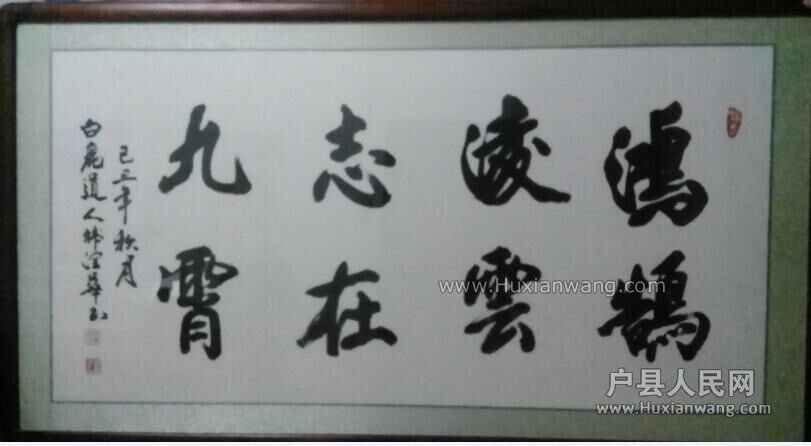 鸿鹄
凌雲
志在
九霄
己丑年秋月
白鹿道人韩
www.Huxianwang.com
户县人民网
www.Huxianwang.com